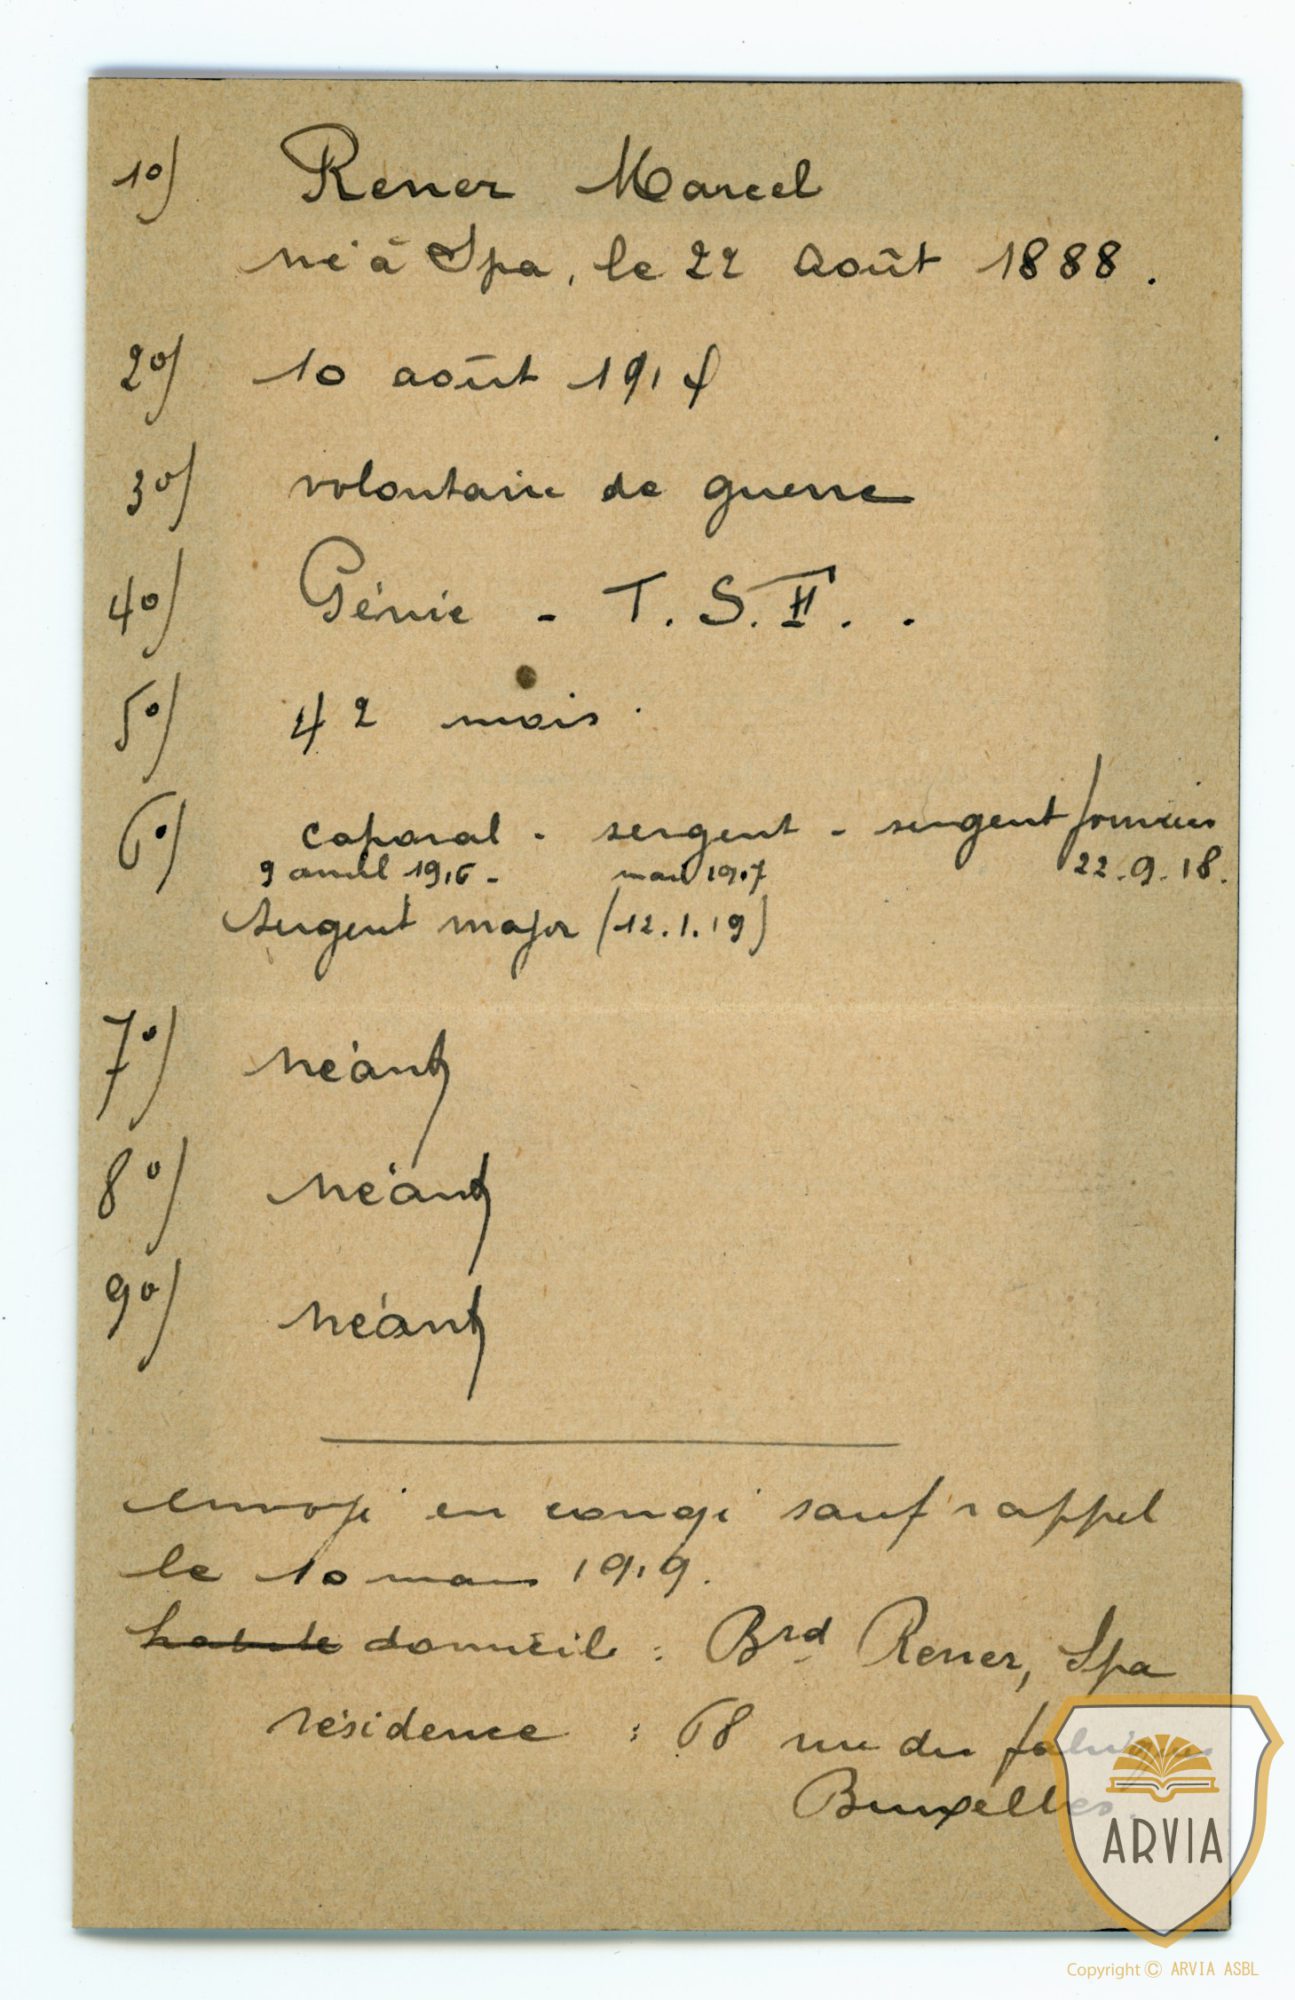 1o) Rener Marcel
né à Spa, le 22 Août 1888.
2o) 10 août 1914
3o) volontaire de guerre
4o) Génie - T. S. F. .
5o) 42 mois.
6o) caporal - sergent - sergent fourrier
9 avril 1916 - 1917 22-9-18.
sergent major (12.1.19)
7o) néant
8o) néant
9o) néant
envoyé en congé sauf rappel
le 10 mars 1919.
habite domicile : Brd Rener, Spa
résidence : 68 rue des fabriques
Bruxelles.
ARVIA
Copyright © ARVIA ASBL